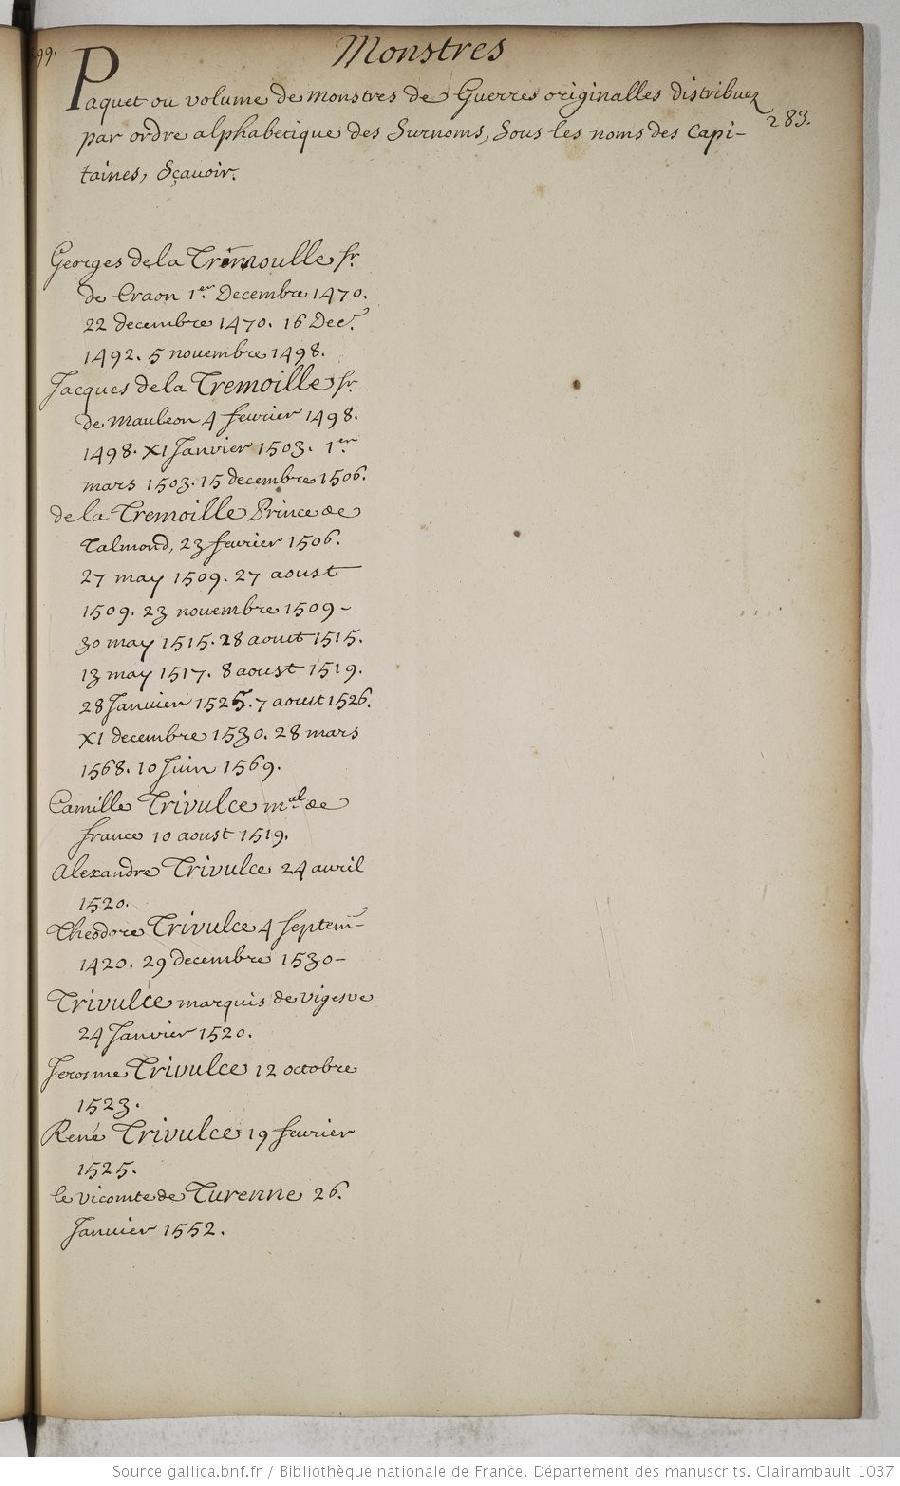 Monstres
Paquet ou volume de monstres de Guerres originalles distribuez
par ordre alphabetique des Surnoms, Sous les noms des Capi-
283.
taines, Sçavoir.
Georges de la Trimoulle sr.
de Craon 1er. Decembre 1470.
22 decembre 1470. 16 Decr.
1492. 5 novembre 1498.
Jacques de la Tremoille sr.
de Mauleon 4 fevrier 1498.
1498. XI Janvier 1503. 1er.
mars 1503. 15 decembre 1506.
de la Tremoille Prince de
Talmond, 23 fevrier 1506.
27 may 1509. 27 aoust
1509. 23 novembre 1509-
30 may 1515. 28 aoust 1515.
13 may 1517. 8 aoust 1519.
28 Janvier 1525. 7 aoust 1526.
XI decembre 1530. 28 mars
1568. 10 Juin 1569.
Camille Trivulce mal. de
france 10 aoust 1519.
Alexandre Trivulce 24 avril
1520.
Theodore Trivulce 4 Septem-
1420. 29 decembre 1530-
Trivulce marquis de Vigesve
24 Janvier 1520.
Jerosme Trivulce 12 octobre
1523.
René Trivulce 19 fevrier
1525.
le vicomte de Turenne 26.
Janvier 1552.
Source gallica.bnf.fr / Bibliothèque nationale de France. Département des manuscrits. Clairambault 1037